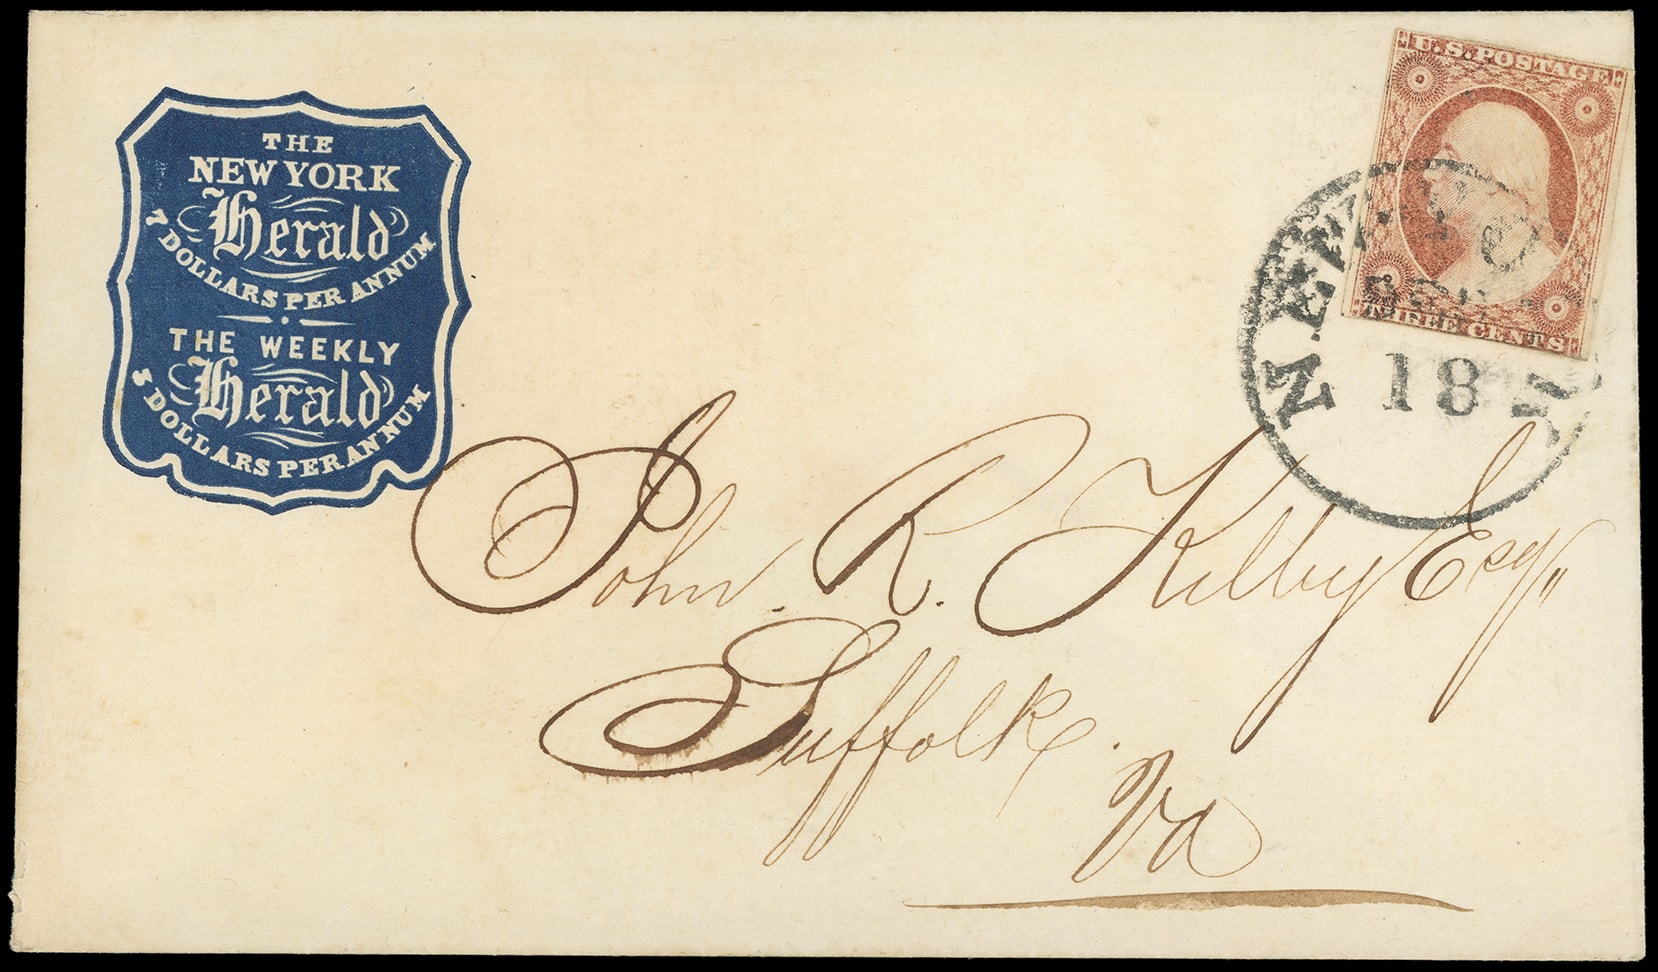 THE
NEW YORK
Herald
7 DOLLARS PER ANNUM
THE WEEKLY
Herald
3 DOLLARS PER ANNUM
U.S. POSTAGE
THREE CENTS
NEW-YO
18
John. R. Kilby Esq,,
Suffolk.
Va